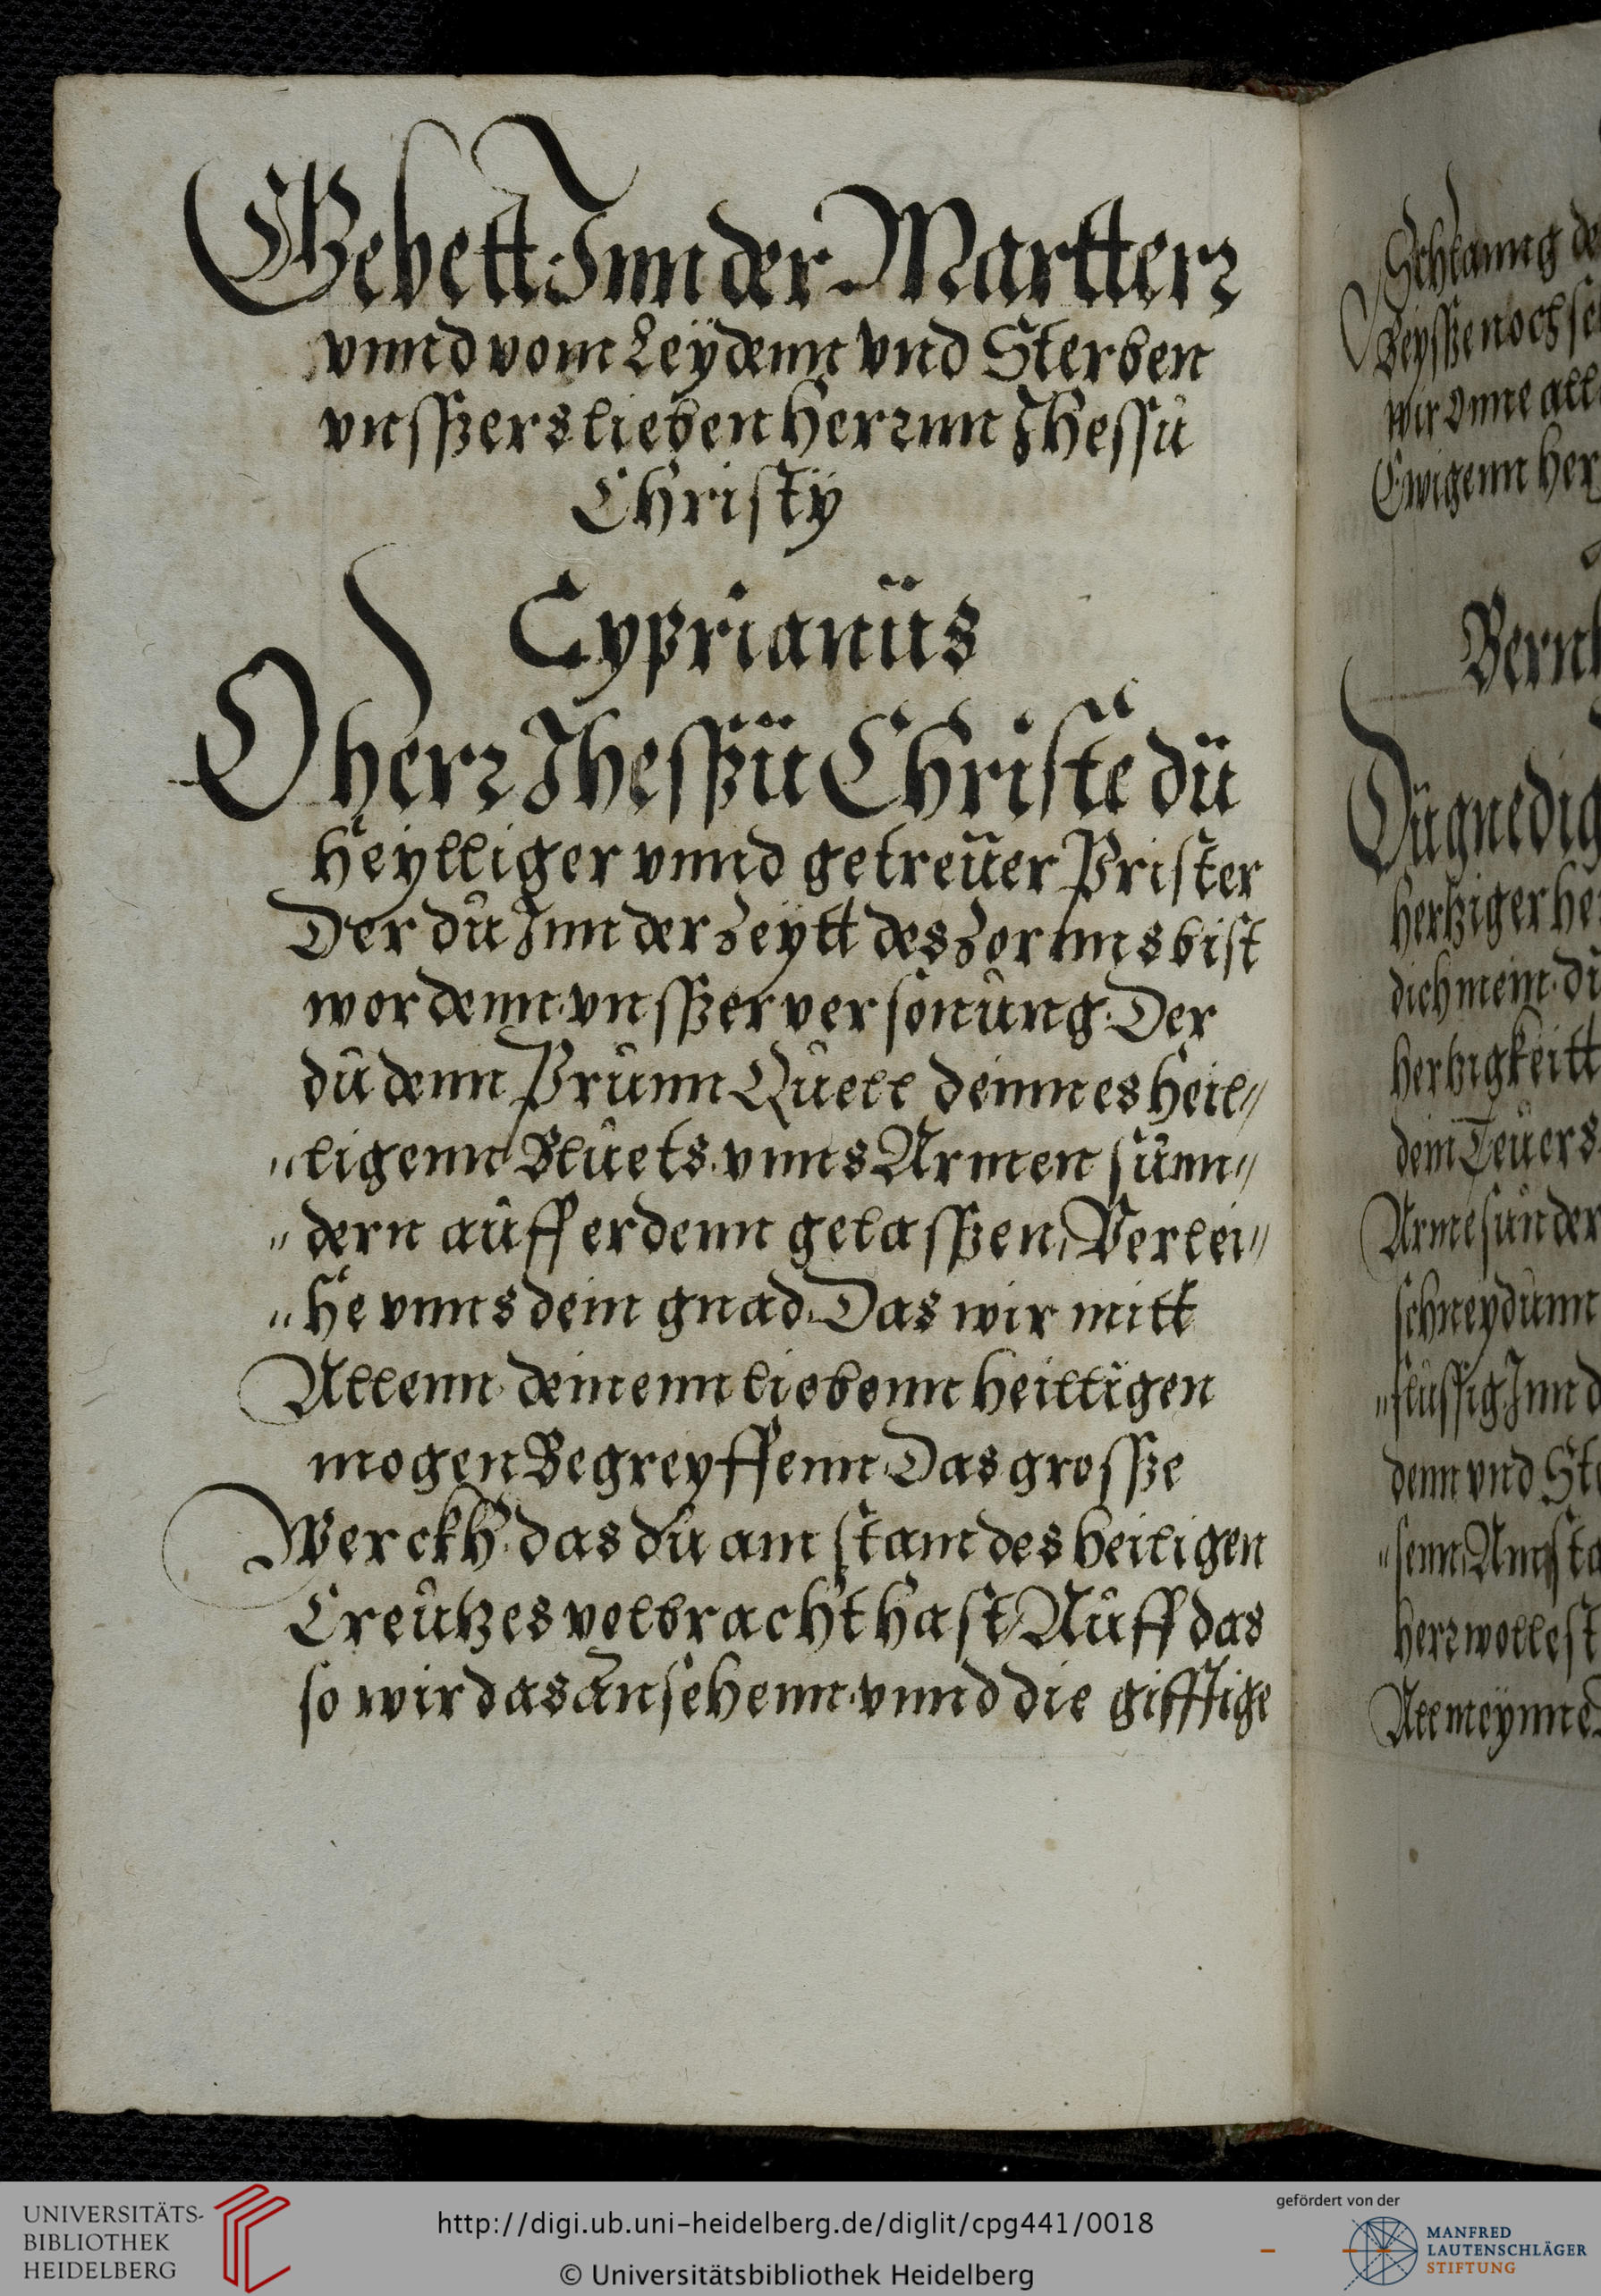 Gebett Inn der Martterr
vnnd vom Leÿdenn vnd Sterben
vnsßers lieben Herrnn Jhessu
Christÿ
Cyprianüs
O herr Jhesßü Christe dü
Heylliger vnnd getreüer Prister
Der dů Inn der Zeÿtt des Zornns bist
wordenn vnsßer versonůng. Der
dů denn Průnn Qůell deinnes Heil〃
〃ligenn Blůets. vnns Armen sůnn〃
〃dern aůff erdenn gelasßen, Verlei〃
〃He vnns dein gnad. Das wir mitt
Allenn deinenn liebenn Heilligen
mogen Begreyffenn Das grosße
Werckh. das dů am stam des heiligen
Creůtzes volbracht hast Aůff das
so wir das Ansehenn. vnnd die gifftige
Schlanng de
Beysße noch se
wir Onne all
Ewigenn Her
Bern
Dü gnedig
hertziger he
dich mein. dü
hertzigkeitt
dein Teůers
Arme sůnder
schneydůnn
〃flůssig Inn d
denn vnd Ste
〃senn, Am sta
herr wollest
All meÿnne
UNIVERSITÄTS-
BIBLIOTHEK
HEIDELBERG
http://digi.ub.uni-heidelberg.de/diglit/cpg441/0018
© Universitätsbibliothek Heidelberg
gefördert von der
MANFRED
LAUTENSCHLÄGER
STIFTUNG